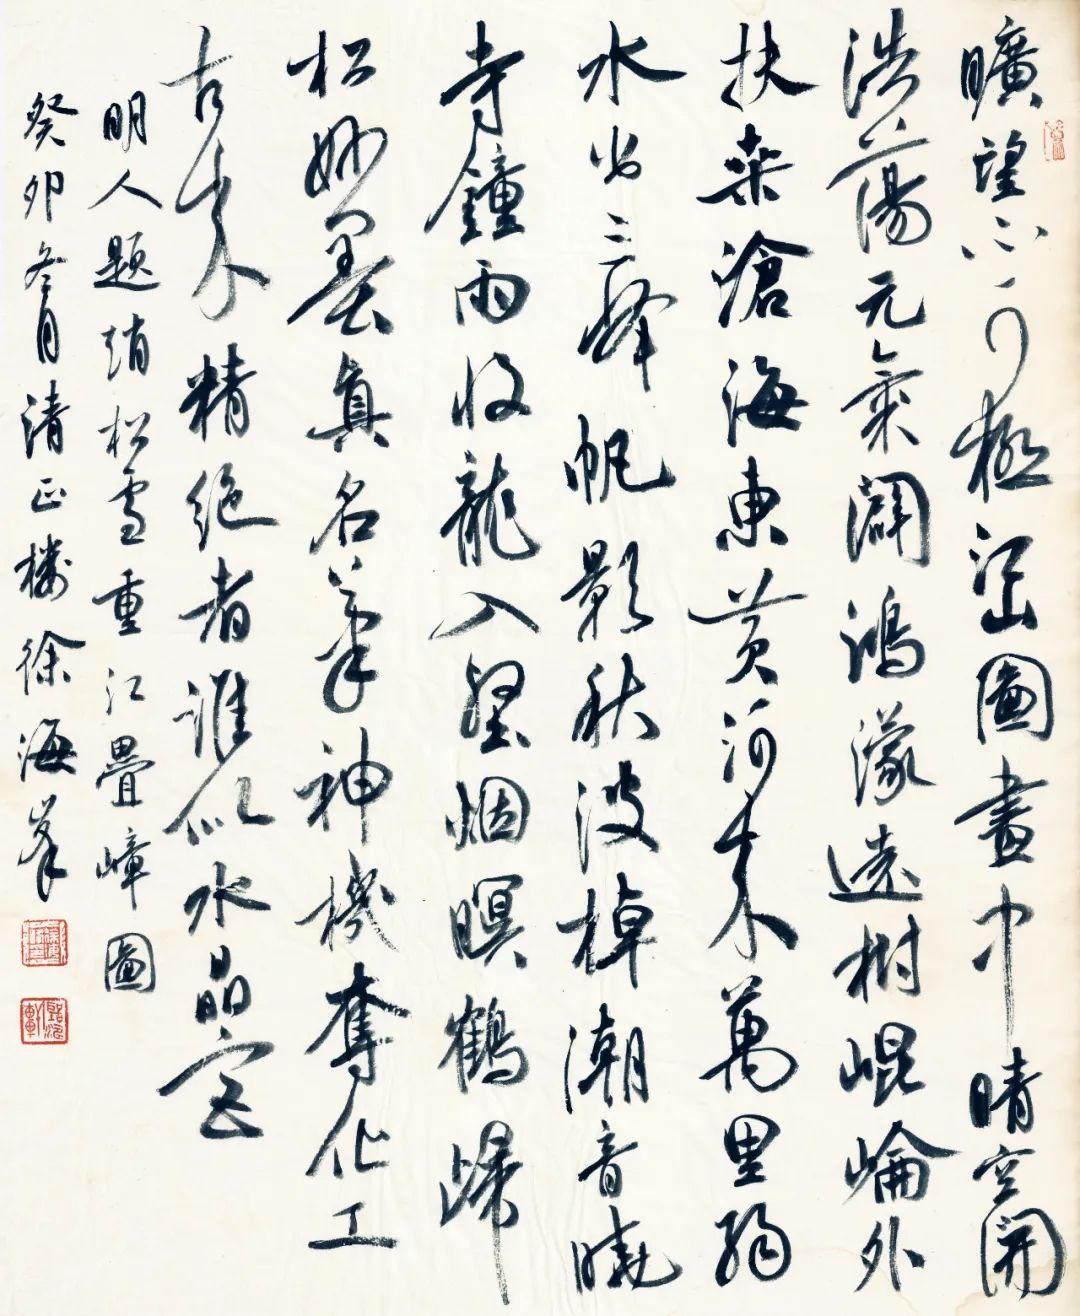 曠望不可極江山圖畫中晴空開
浩蕩元氣闢鴻濛遠樹崐崘外
扶桑滄海東黃河來萬里弱
水當三峰帆影秋波棹潮音曉
寺鐘雨收龍入壑烟暝鶴歸
松妙墨真名筆神機奪化工
古來精絕者誰似水晶宮
明人題趙松雪重江疊嶂圖
癸卯冬月清正樓徐海峯